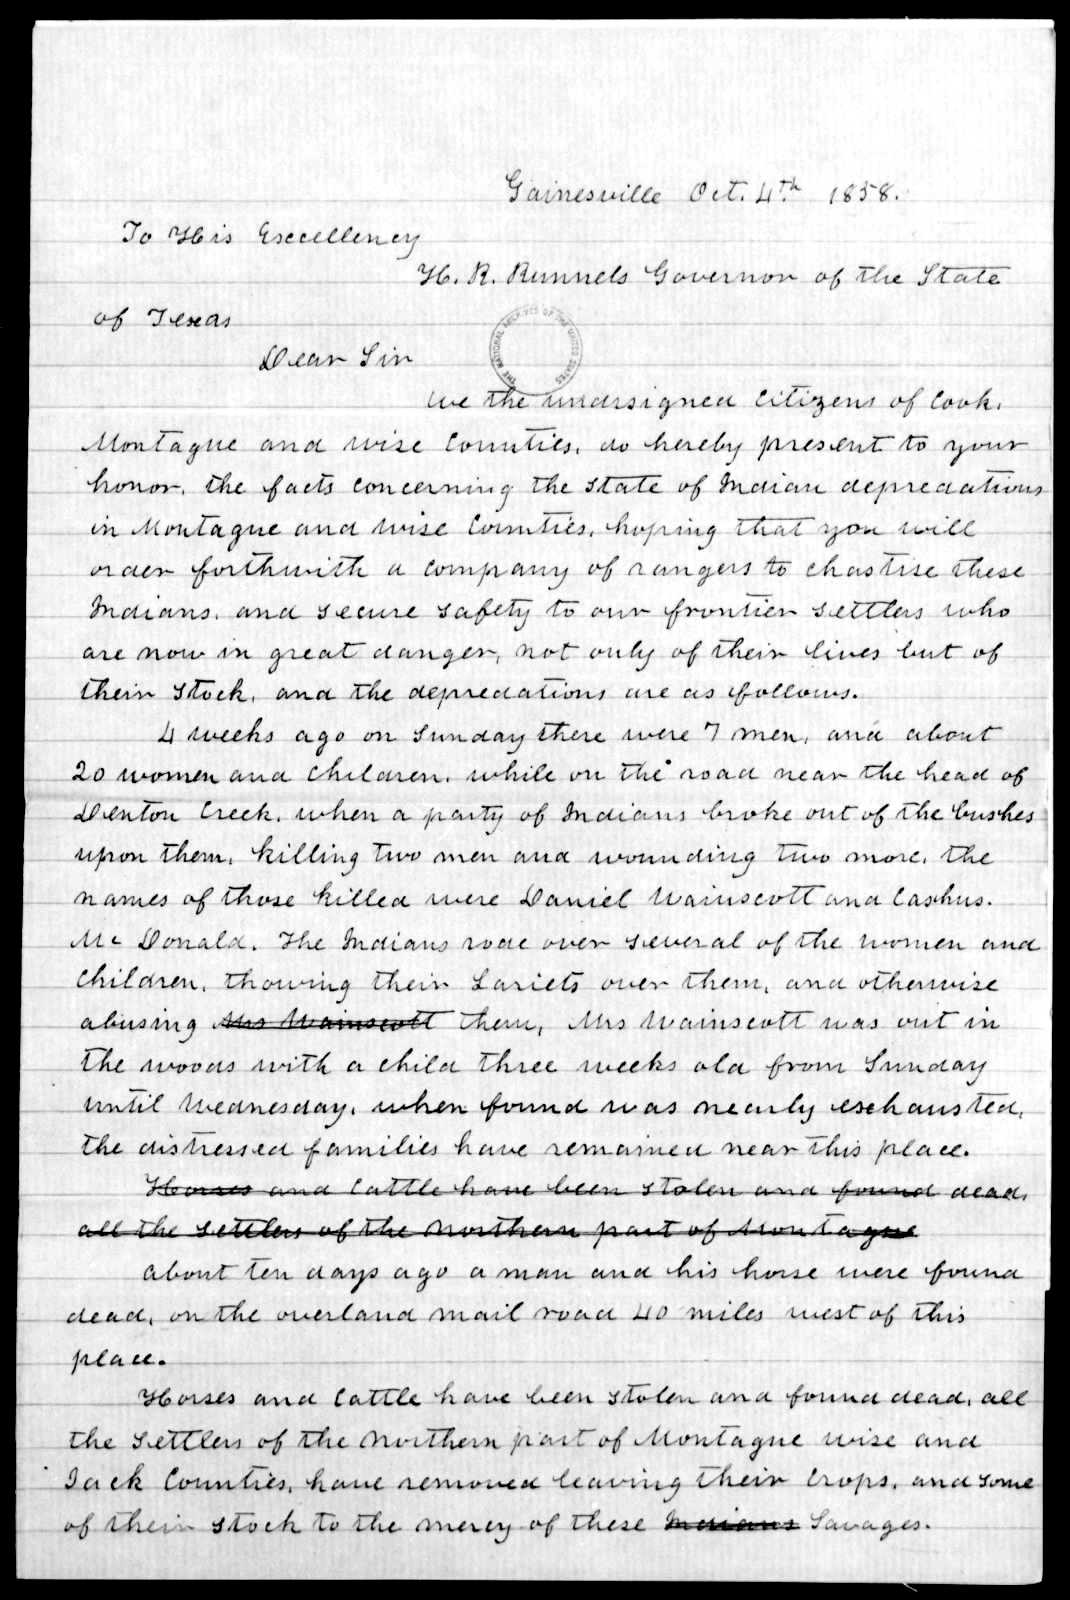 Gainesville Oct. 4th 1858.
To His Excellency
H. R. Runnels Governor of the State
of Texas
THE NATIONAL ARCHIVES OF THE UNITED STATES
Dear Sir
We the undersigned Citizens of Cook,
Montague and Wise Counties, do hereby present to your
honor, the facts concerning the state of Indian depredations
in Montague and Wise Counties, hoping that you will
order forthwith a company of rangers to chastise these
Indians, and secure safety to our frontier settlers who
are now in great danger, not only of their lives but of
their stock, and the depredations are as follows.
4 weeks ago on Sunday there were 7 men, and about
20 women and children, while on the road near the head of
Denton Creek, when a party of Indians broke out of the bushes
upon them, killing two men and wounding two more, the
names of those killed were Daniel Wainscott and Cashus.
Mc Donald. The Indians rode over several of the women and
children, thowing their Lariets over them, and otherwise
abusing Mrs Wainscott them, Mrs Wainscott was out in
the woods with a child three weeks old from Sunday
until Wednesday, when found was nearly exhausted,
the distressed families have remained near this place.
Horses and Cattle have been stolen and found dead,
all the settlers of the Northern part of Montague
About ten days ago a man and his horse were found
dead, on the overland mail road 40 miles west of this
place.
Horses and Cattle have been stolen and found dead, all
the settlers of the Northern part of Montague Wise and
Jack Counties, have removed leaving their Crops, and some
of their stock to the mercy of these Indians Savages.